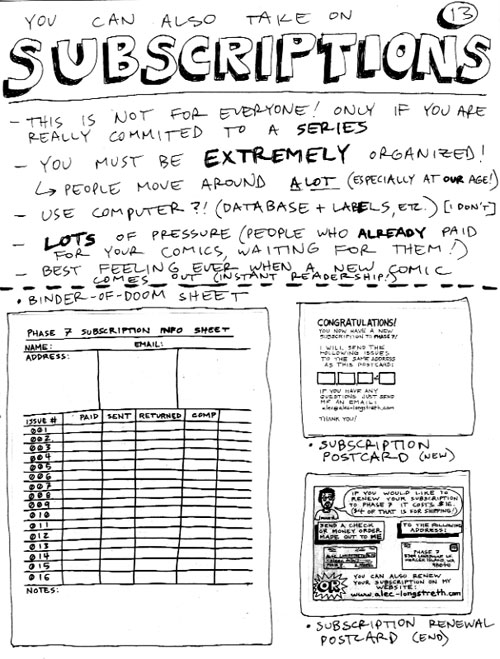 YOU CAN ALSO TAKE ON
13
SUBSCRIPTIONS
- THIS IS NOT FOR EVERYONE! ONLY IF YOU ARE
REALLY COMMITED TO A SERIES
- YOU MUST BE EXTREMELY ORGANIZED!
↳ PEOPLE MOVE AROUND A LOT (ESPECIALLY AT OUR AGE!)
- USE COMPUTER?! (DATABASE + LABELS, ETC.) [I DON'T]
- LOTS OF PRESSURE (PEOPLE WHO ALREADY PAID
FOR YOUR COMICS, WAITING FOR THEM!)
- BEST FEELING EVER WHEN A NEW COMIC
COMES OUT (INSTANT READERSHIP!)
• BINDER-OF-DOOM SHEET
PHASE 7 SUBSCRIPTION INFO SHEET
NAME: EMAIL:
ADDRESS:
ISSUE # PAID SENT RETURNED COMP
001
002
003
004
005
006
007
008
009
010
011
012
013
014
015
016
NOTES:
CONGRATULATIONS!
YOU NOW HAVE A NEW
SUBSCRIPTION TO PHASE 7!
I WILL SEND THE
FOLLOWING ISSUES
TO THE SAME ADDRESS
AS THIS POSTCARD:
IF YOU HAVE ANY
QUESTIONS JUST SEND
ME AN EMAIL:
alec@alec-longstreth.com
THANK YOU!
• SUBSCRIPTION
POSTCARD (NEW)
IF YOU WOULD LIKE TO
RENEW YOUR SUBSCRIPTION
TO PHASE 7 IT COSTS $16.
($4 OF THAT IS FOR SHIPPING!)
SEND A CHECK
OR MONEY ORDER
MADE OUT TO ME
TO THE FOLLOWING
ADDRESS:
PHASE 7
OR
YOU CAN ALSO RENEW
YOUR SUBSCRIPTION ON MY
WEBSITE:
www.alec-longstreth.com
• SUBSCRIPTION RENEWAL
POSTCARD (END)